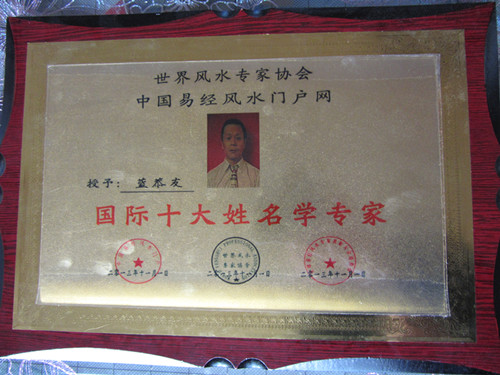 世界风水专家协会
中国易经风水门户网
授予：蓝恭友
国际十大姓名学专家
二〇一三年十一月一日
二〇一三年十一月一日
二〇一三年十一月一日
世界风水
专家协会